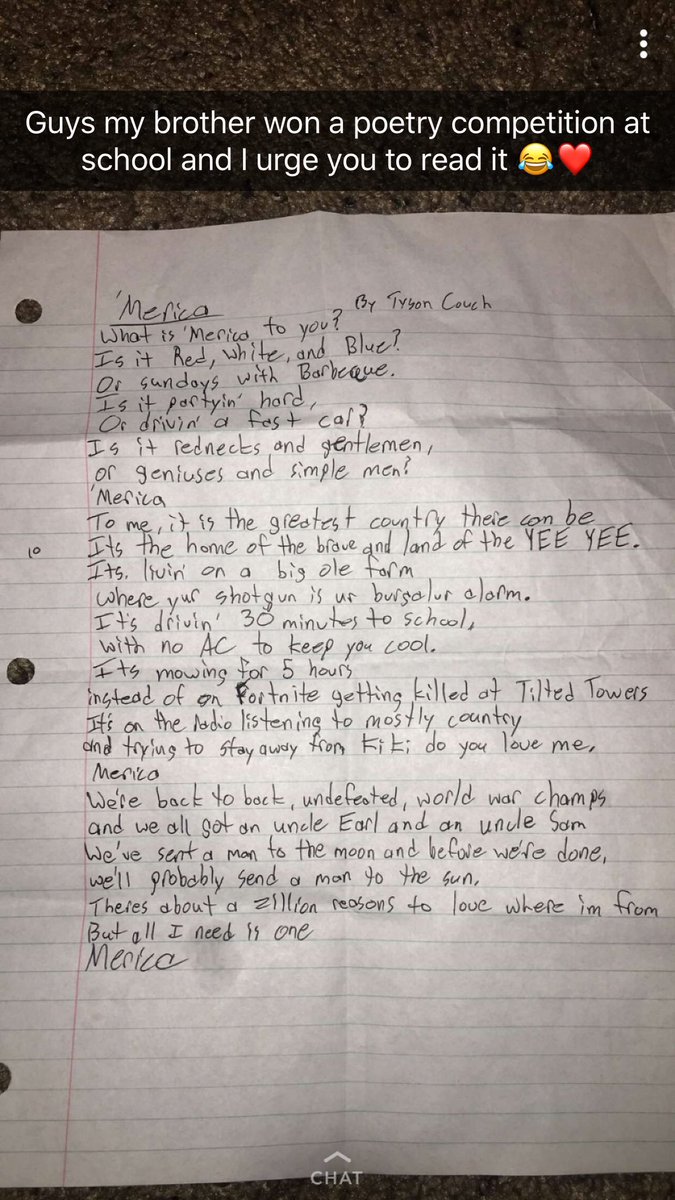 Guys my brother won a poetry competition at
school and I urge you to read it 😂❤️
'Merica By Tyson Couch
What is 'Merica to you?
Is it Red, White, and Blue?
Or sundays with Barbeque.
Is it partyin' hard,
Or drivin' a fast car?
Is it rednecks and gentlemen,
or geniuses and simple men?
'Merica
To me, it is the greatest country there can be
10 Its the home of the brave and land of the YEE YEE.
Its. livin' on a big ole farm
where yur shotgun is ur burgalur alarm.
It's drivin' 30 minutes to school,
with no AC to keep you cool.
Its mowing for 5 hours
instead of on Fortnite getting killed at Tilted Towers
It's on the radio listening to mostly country
and trying to stay away from Kiki do you love me,
Merica
We're back to back, undefeated, world war champs
and we all got an uncle Earl and an uncle Sam
We've sent a man to the moon and before we're done,
we'll probably send a man to the sun.
Theres about a zillion reasons to love where im from
But all I need is one
Merica
CHAT